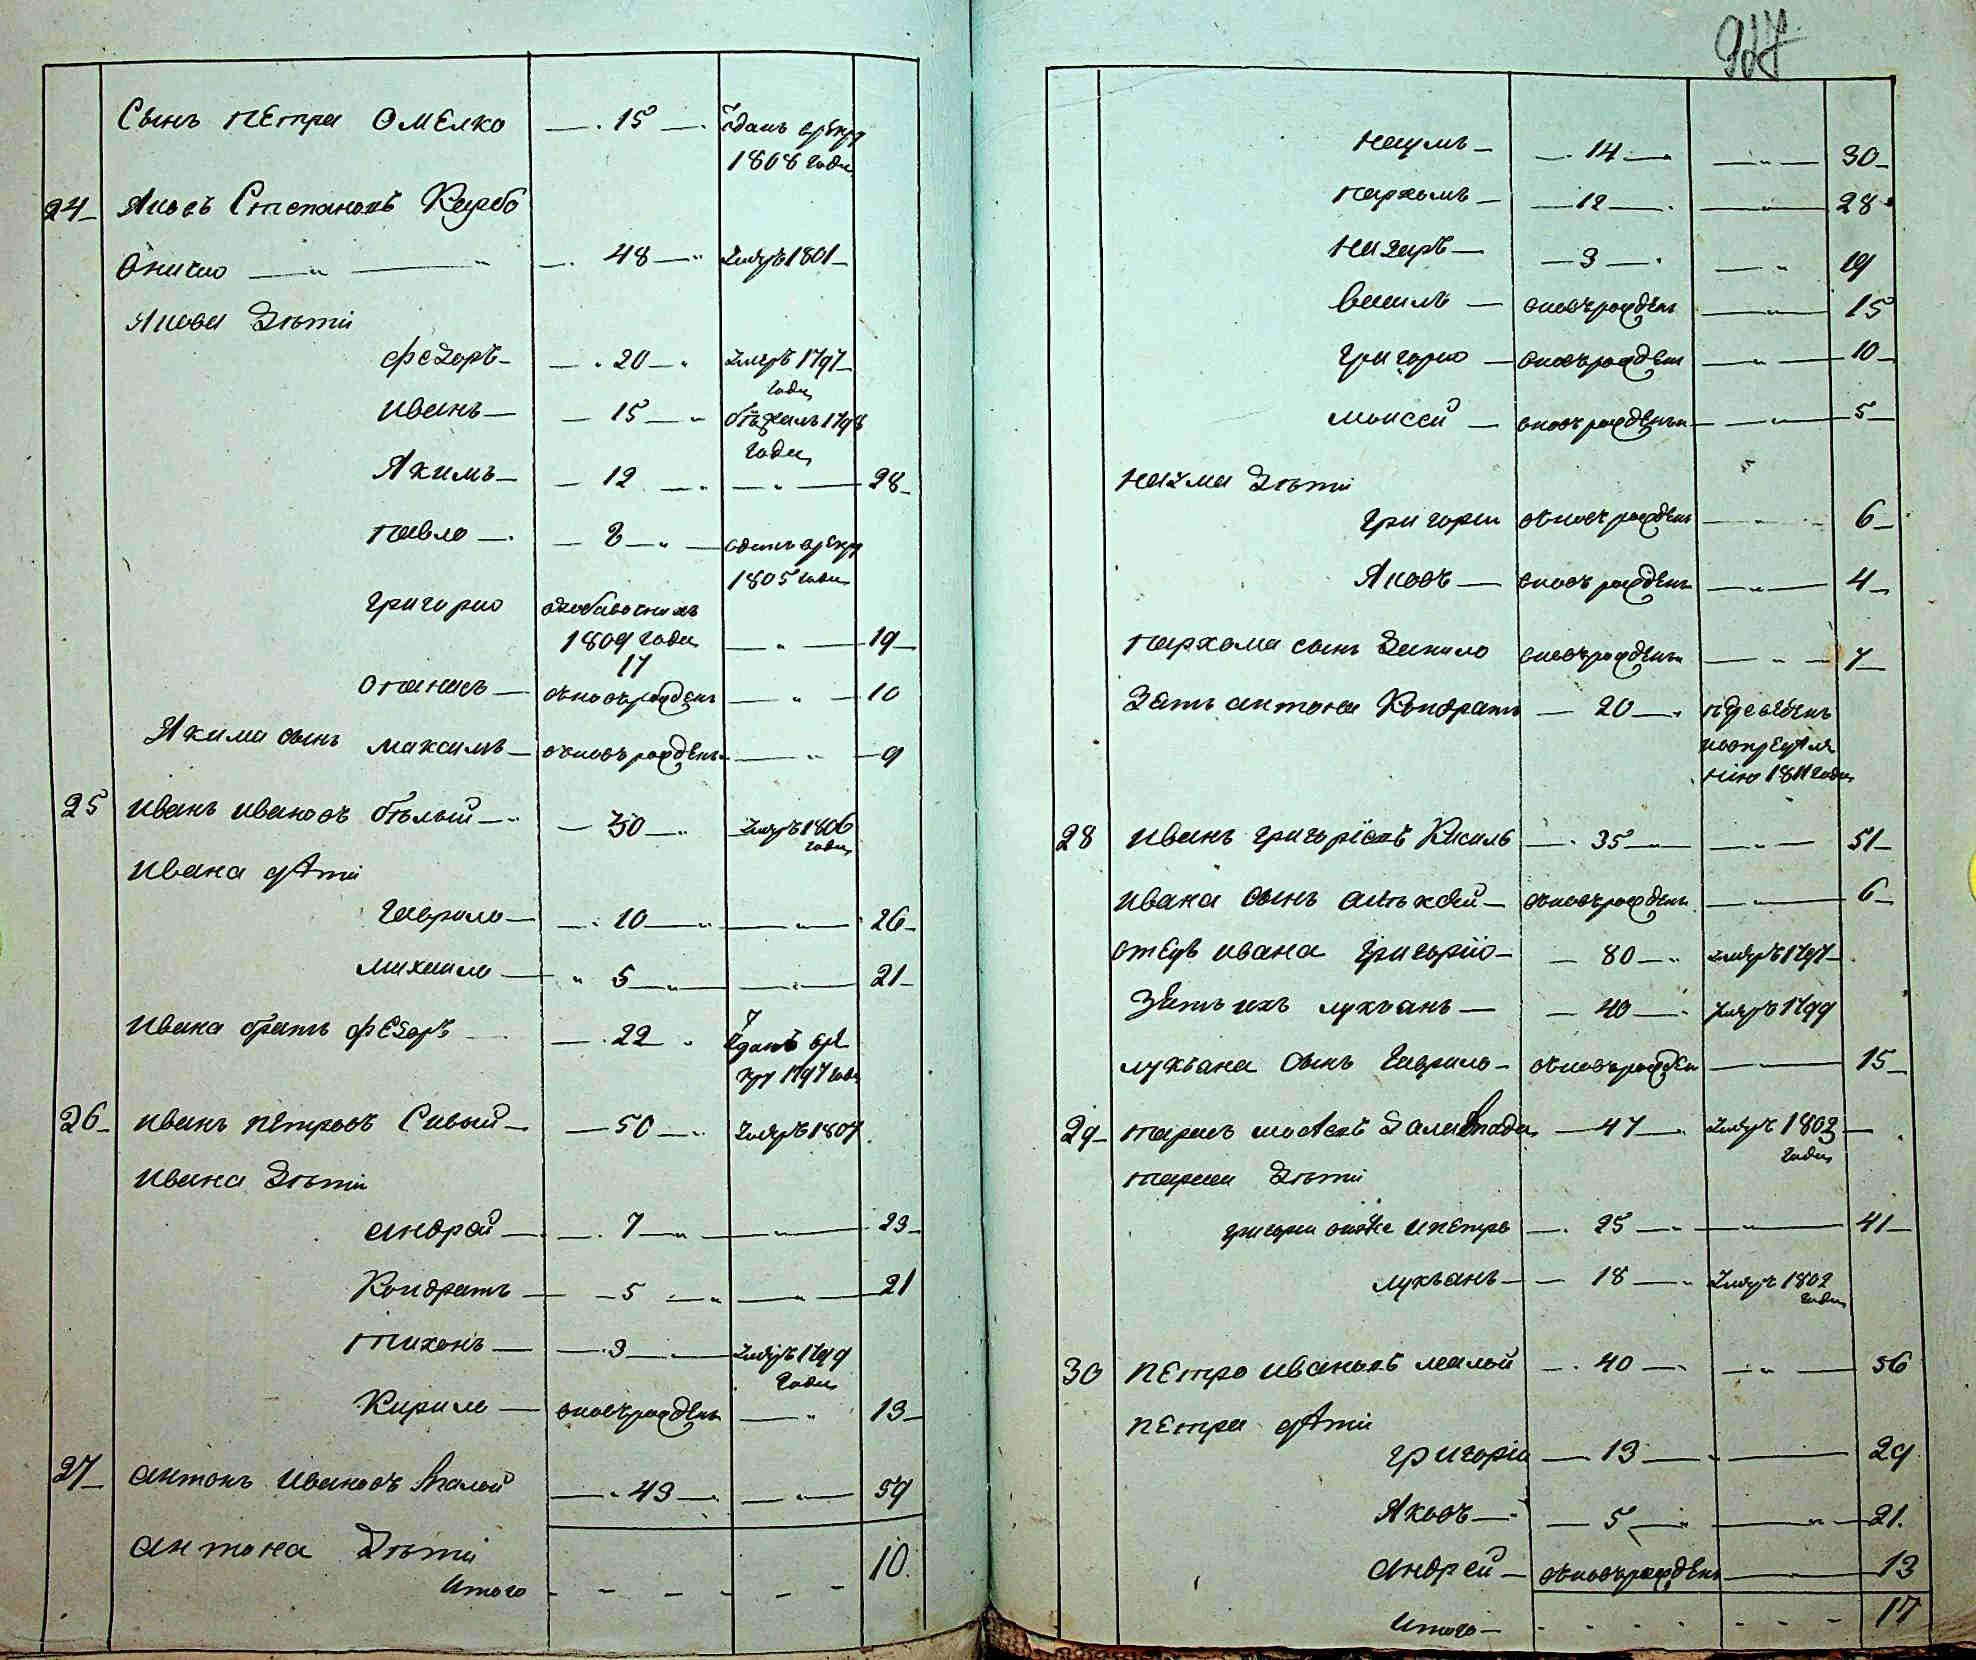 Сынъ Петра Омелко — 15 — зданъ врекру
1808 года
24 Яковъ Степановъ
Оничко — 48 — Умеръ 1801
Якова Дѣти
Федоръ — 20 — Умеръ 1797
года
Иванъ — 15 — бѣжалъ 1798
года
Якимъ — 12 — 28
Павло — 8 — зданъ врекру
1805 года
Григорио
1809 года — 19
17
Опанасъ — вновърожденъ — 10
Якима сынъ Максимъ — вновърожденъ — 9
25 Иванъ Ивановъ Бѣлый — 30 — Умеръ 1806
года
Ивана дѣти
Гаврило — 10 — 26
Михайло — 5 — 21
Ивана братъ Федоръ — 22 — зданъ вре
кру 1797 года
26 Иванъ Петровъ Сивый — 50 — Умеръ 1807
Ивана Дѣти
Андрей — 7 — 23
Кондратъ — 5 — 21
Тихонъ — 3 — Умеръ 1799
года
Кирило — вновърожденъ — 13
27 Антонъ Ивановъ Малой — 43 — 59
Антона Дѣти
Итого — 10
947
Наумъ — 14 — 30
Пархомъ — 12 — 28
Назаръ — 3 — 19
Василь — вновърожденъ — 15
Григорио — вновърожденъ — 10
Моисей — вновърожденъ — 5
Наума Дѣти
Григорий вновърожденъ — 6
Яковъ — вновърожденъ — 4
Пархома сынъ Данило вновърожденъ — 7
Зять Антона Кондратъ — 20
1811 года
28 Иванъ Григорiевъ Кисиль — 35 — 51
Ивана сынъ Алѣксѣй — вновърожденъ — 6
Отецъ Ивана Григорiо — 80 — Умеръ 1797
Зять ихъ Лукъанъ — 40 — Умеръ 1799
Лукъана Сынъ Гаврило — вновърожденъ — 15
29 Тарасъ — 47 — Умеръ 1803
года
Тараса Дѣти
Григорий онже Ипетро — 25 — 41
Лукъанъ — 18 — Умеръ 1802
года
30 Петро Ивановъ Малой — 40 — 56
Петра дѣти
Григорiй — 13 — 29
Яковъ — 5 — 21
Андрей — вновърожденъ — 13
Итого — 17